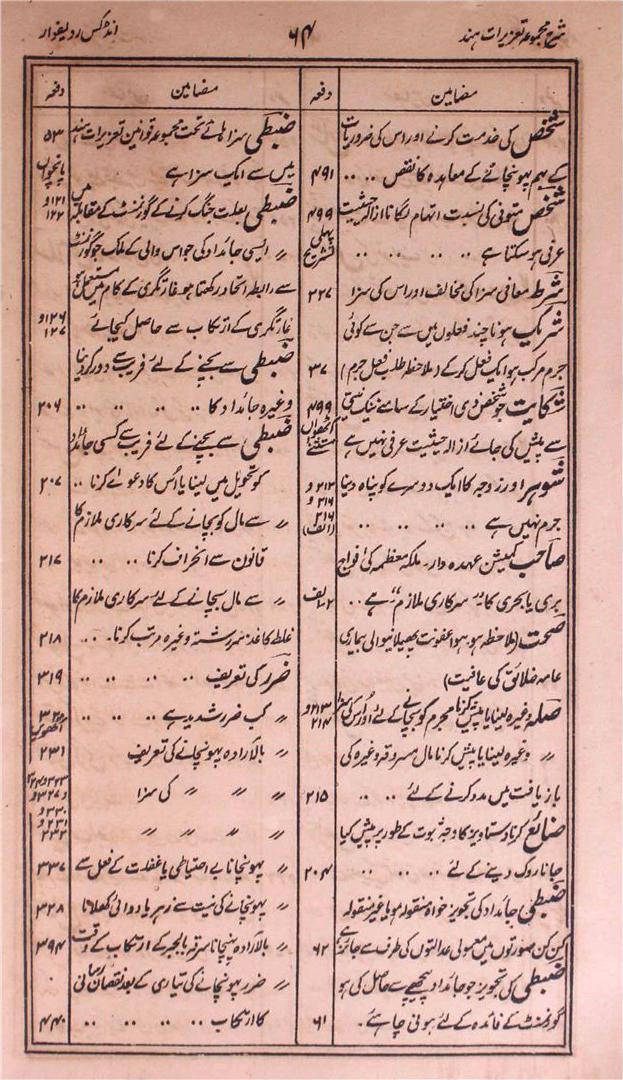 شرح مجموعہ تعزیرات ہند
۶۴
انڈکس ردیفوار
مضامین
دفعہ
شخص کی خدمت کرنے اور اس کی ضروریات
کے بہم پہونچانے کے معاہدہ کا نقص .. .. ۴۹۱
شخص متوفی کی نسبت اتہام لگانا ازالہ حیثیت ۴۹۹
عرفی ہو سکتا ہے .. .. .. .. پہلی تشریح
شرط معافی سزا کی مخالف اور اس کی سزا ۲۲۷
شریک ہونا چند فعلوں میں سے جن سے کوئی
جرم مرکب ہو ایک فعل کر کے (ملاحظہ طلب فعل جرم) ۳۷
شکایت جو شخص ذی اختیار کے سامنے نیک نیتی ۴۹۹
سے پیش کی جائے ازالہ حیثیت عرفی نہیں ہے آٹھواں مستثنٰے
شوہر اور زوجہ کا ایک دوسرے کو پناہ دینا ۲۱۲ و ۲۱۶ و
جرم نہیں ہے .. .. .. .. ۲۱۶ (الف)
صاحب کمیشن عہدہ دار۔ ملکہ معظمہ کی افواج
بری یا بحری کا ’’سرکاری ملازم‘‘ ہے ..
صحت (ملاحظہ ہو ہوا عفونت پھیلانیوالی بیماری
عامہ خلائق کی عافیت)
صلہ وغیرہ لینا یا پیش کرنا مجرم کو بچانے کے لئے اور اس کی سزا ۲۱۳ و ۲۱۴
〃 وغیرہ لینا یا پیش کرنا مال مسروقہ وغیرہ کی
بازیافت میں مدد کرنے کے لئے .. .. ۲۱۵
ضائع کرنا دستاویز کا وجہ ثبوت کے طور پر پیش کیا
جانا روک دینے کے لئے .. .. .. ۲۰۴
ضبطی جائداد کی تجویز خواہ منقولہ ہو یا غیر منقولہ
کن کن صورتوں میں معمولی عدالتوں کی طرف سے جائز ہے ۶۲
ضبطی کی تجویز جو جائداد پیچھے سے حاصل کی ہو
گورنمنٹ کے فائدہ کے لئے ہونی چاہئے۔ ۶۱
مضامین
دفعہ
ضبطی سزا ہائے تحت مجموعہ قوانین تعزیرات ہند ۵۳
میں سے ایک سزا ہے پانچواں
ضبطی بعلت جنگ کرنے کے گورنمنٹ کے مقابلہ میں ۱۲۱ و ۱۲۲
〃 ایسی جائداد کی جو اس والی کے ملک جو گورنمنٹ
سے رابطہ اتحاد رکھتا ہو غارتگری کے کام میں مستعمل ہو یا
غارتگری کے ارتکاب سے حاصل کیجائے ۱۲۶ و ۱۲۷
ضبطی سے بچنے کے لئے فریب سے دور کر دینا
وغیرہ جائداد کا .. .. .. .. ۲۰۶
ضبطی سے بچنے کے لئے فریب سے کسی جائداد
کو تحویل میں لینا یا اُس کا دعوے کرنا .. ۲۰۷
〃 سے مال کو بچانے کے لئے سرکاری ملازم کا
قانون سے انحراف کرنا .. .. ۲۱۷
〃 سے مال بچانے کے لئے سرکاری ملازم کا
غلط کاغذ سررشتہ وغیرہ مرتب کرنا۔ .. ۲۱۸
ضرر کی تعریف .. .. .. .. ۳۱۹
〃 کب ضرر شدید ہے .. .. .. ۳۲۰
〃 بالارادہ پہونچانے کی تعریف ۳۲۱
〃 〃 〃 〃 کی سزا
〃 〃 〃 〃 〃
〃 پہونچانا بے احتیاطی یا غفلت کے فعل سے ۳۳۷
〃 پہونچانے کی نیت سے زہر یا دوائی کھلانا ۳۲۸
〃 بالارادہ پہنچانا سرقہ بالجبر کے ارتکاب کے وقت ۳۹۴
〃 ضرر پہونچانے کی تیاری کے بعد نقصان رسانی
کا ارتکاب .. .. .. .. ۴۴۰